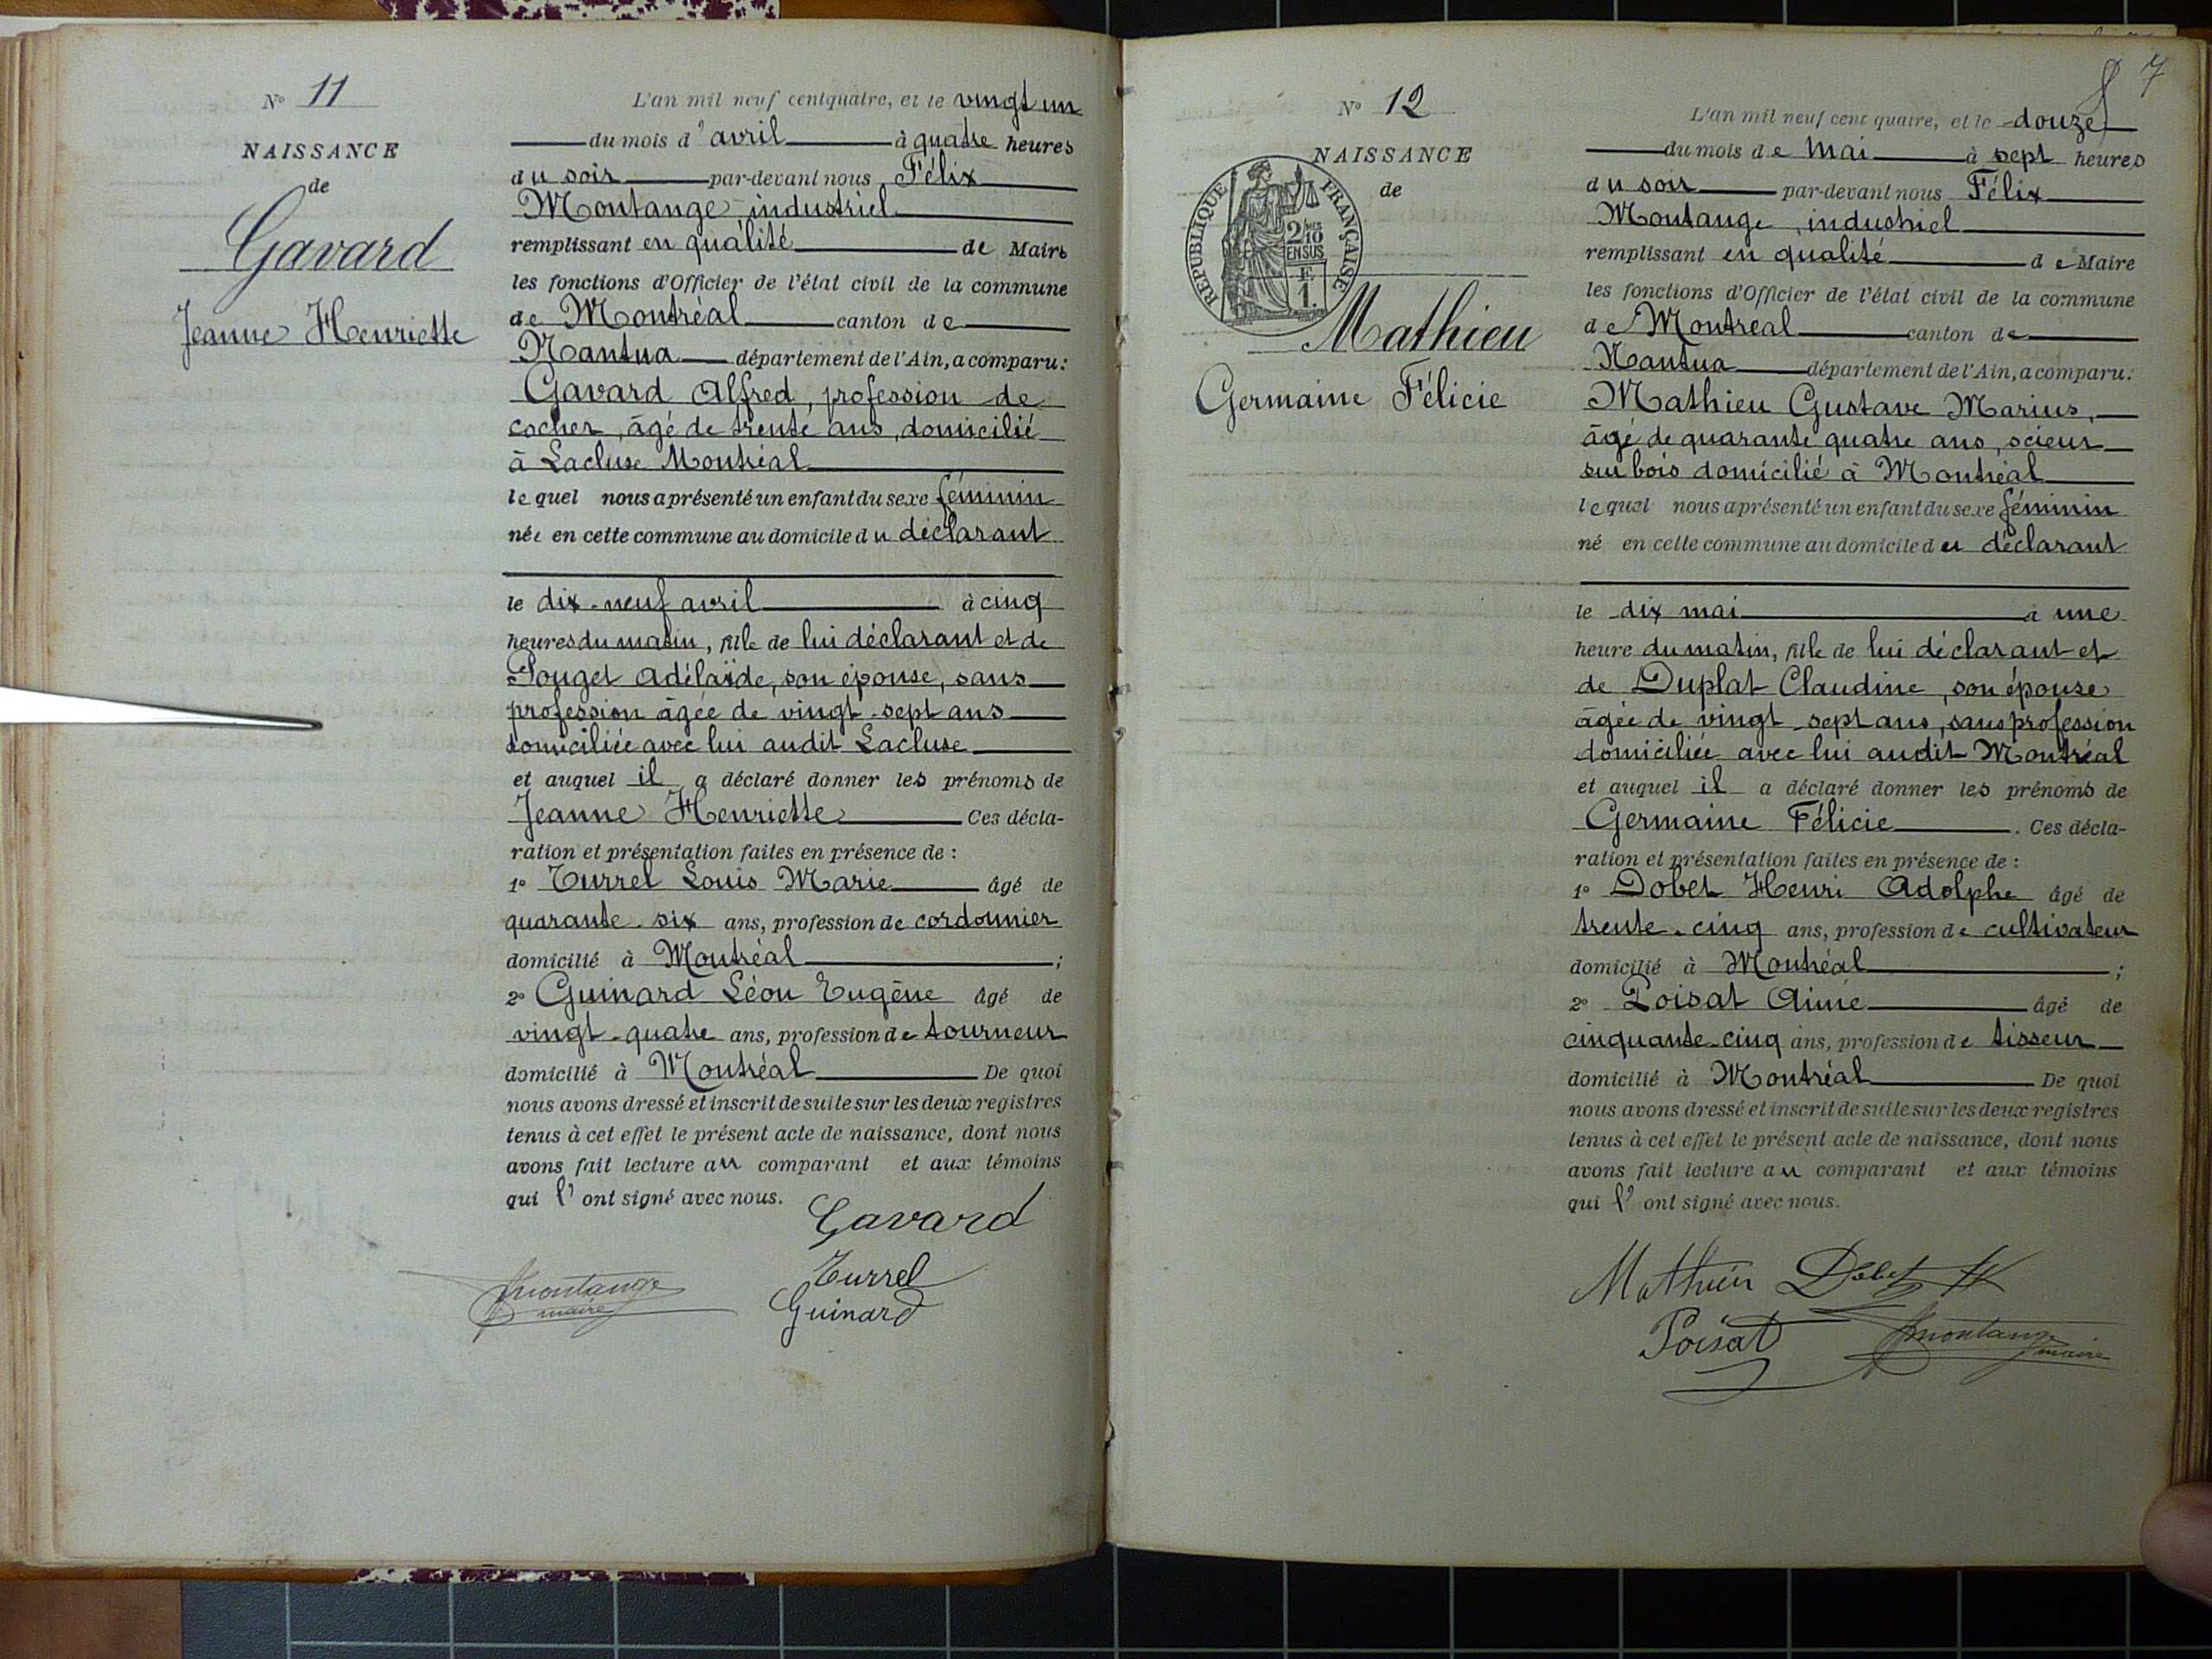 N° 11
NAISSANCE
de
Gavard
Jeanne Henriette
L'an mil neuf cent quatre, et le vingt un
du mois d'avril à quatre heures
du soir par-devant nous Félix
Montange, industriel
remplissant en qualité de Maire
les fonctions d'Officier de l'état civil de la commune
de Montréal canton de
Nantua département de l'Ain, a comparu:
Gavard Alfred, profession de
cocher, âgé de trente ans, domicilié
à Lacluse Montréal
lequel nous a présenté un enfant du sexe féminin
née en cette commune au domicile du déclarant
le dix-neuf avril à cinq
heures du matin, fille de lui déclarant et de
Pouget Adélaïde, son épouse, sans
profession âgée de vingt-sept ans
domiciliée avec lui audit Lacluse
et auquel il a déclaré donner les prénoms de
Jeanne Henriette Ces décla-
ration et présentation faites en présence de :
1° Turrel Louis Marie âgé de
quarante-six ans, profession de cordonnier
domicilié à Montréal ;
2° Guinard Léon Eugène âgé de
vingt-quatre ans, profession de tourneur
domicilié à Montréal De quoi
nous avons dressé et inscrit de suite sur les deux registres
tenus à cet effet le présent acte de naissance, dont nous
avons fait lecture au comparant et aux témoins
qui l'ont signé avec nous.
Gavard
Turrel
Montange
maire
Guinard
7
N° 12
NAISSANCE
de
RÉPUBLIQUE FRANÇAISE
2/10
EN SUS
1.
Mathieu
Germaine Félicie
L'an mil neuf cent quatre, et le douze
du mois de Mai à sept heures
du soir par-devant nous Félix
Montange, industriel
remplissant en qualité de Maire
les fonctions d'Officier de l'état civil de la commune
de Montréal canton de
Nantua département de l'Ain, a comparu:
Mathieu Gustave Marius,
âgé de quarante quatre ans, scieur
sur bois domicilié à Montréal
lequel nous a présenté un enfant du sexe féminin
né en cette commune au domicile du déclarant
le dix mai à une
heure du matin, fille de lui déclarant et
de Duplat Claudine, son épouse
âgée de vingt-sept ans, sans profession
domiciliée avec lui audit Montréal
et auquel il a déclaré donner les prénoms de
Germaine Félicie . Ces décla-
ration et présentation faites en présence de :
1° Dobet Henri Adolphe âgé de
trente-cinq ans, profession de cultivateur
domicilié à Montréal ;
2° Poisat Aimé âgé de
cinquante-cinq ans, profession de tisseur
domicilié à Montréal De quoi
nous avons dressé et inscrit de suite sur les deux registres
tenus à cet effet le présent acte de naissance, dont nous
avons fait lecture au comparant et aux témoins
qui l'ont signé avec nous.
Mathieu Dobet H
Poisat Montange
maire